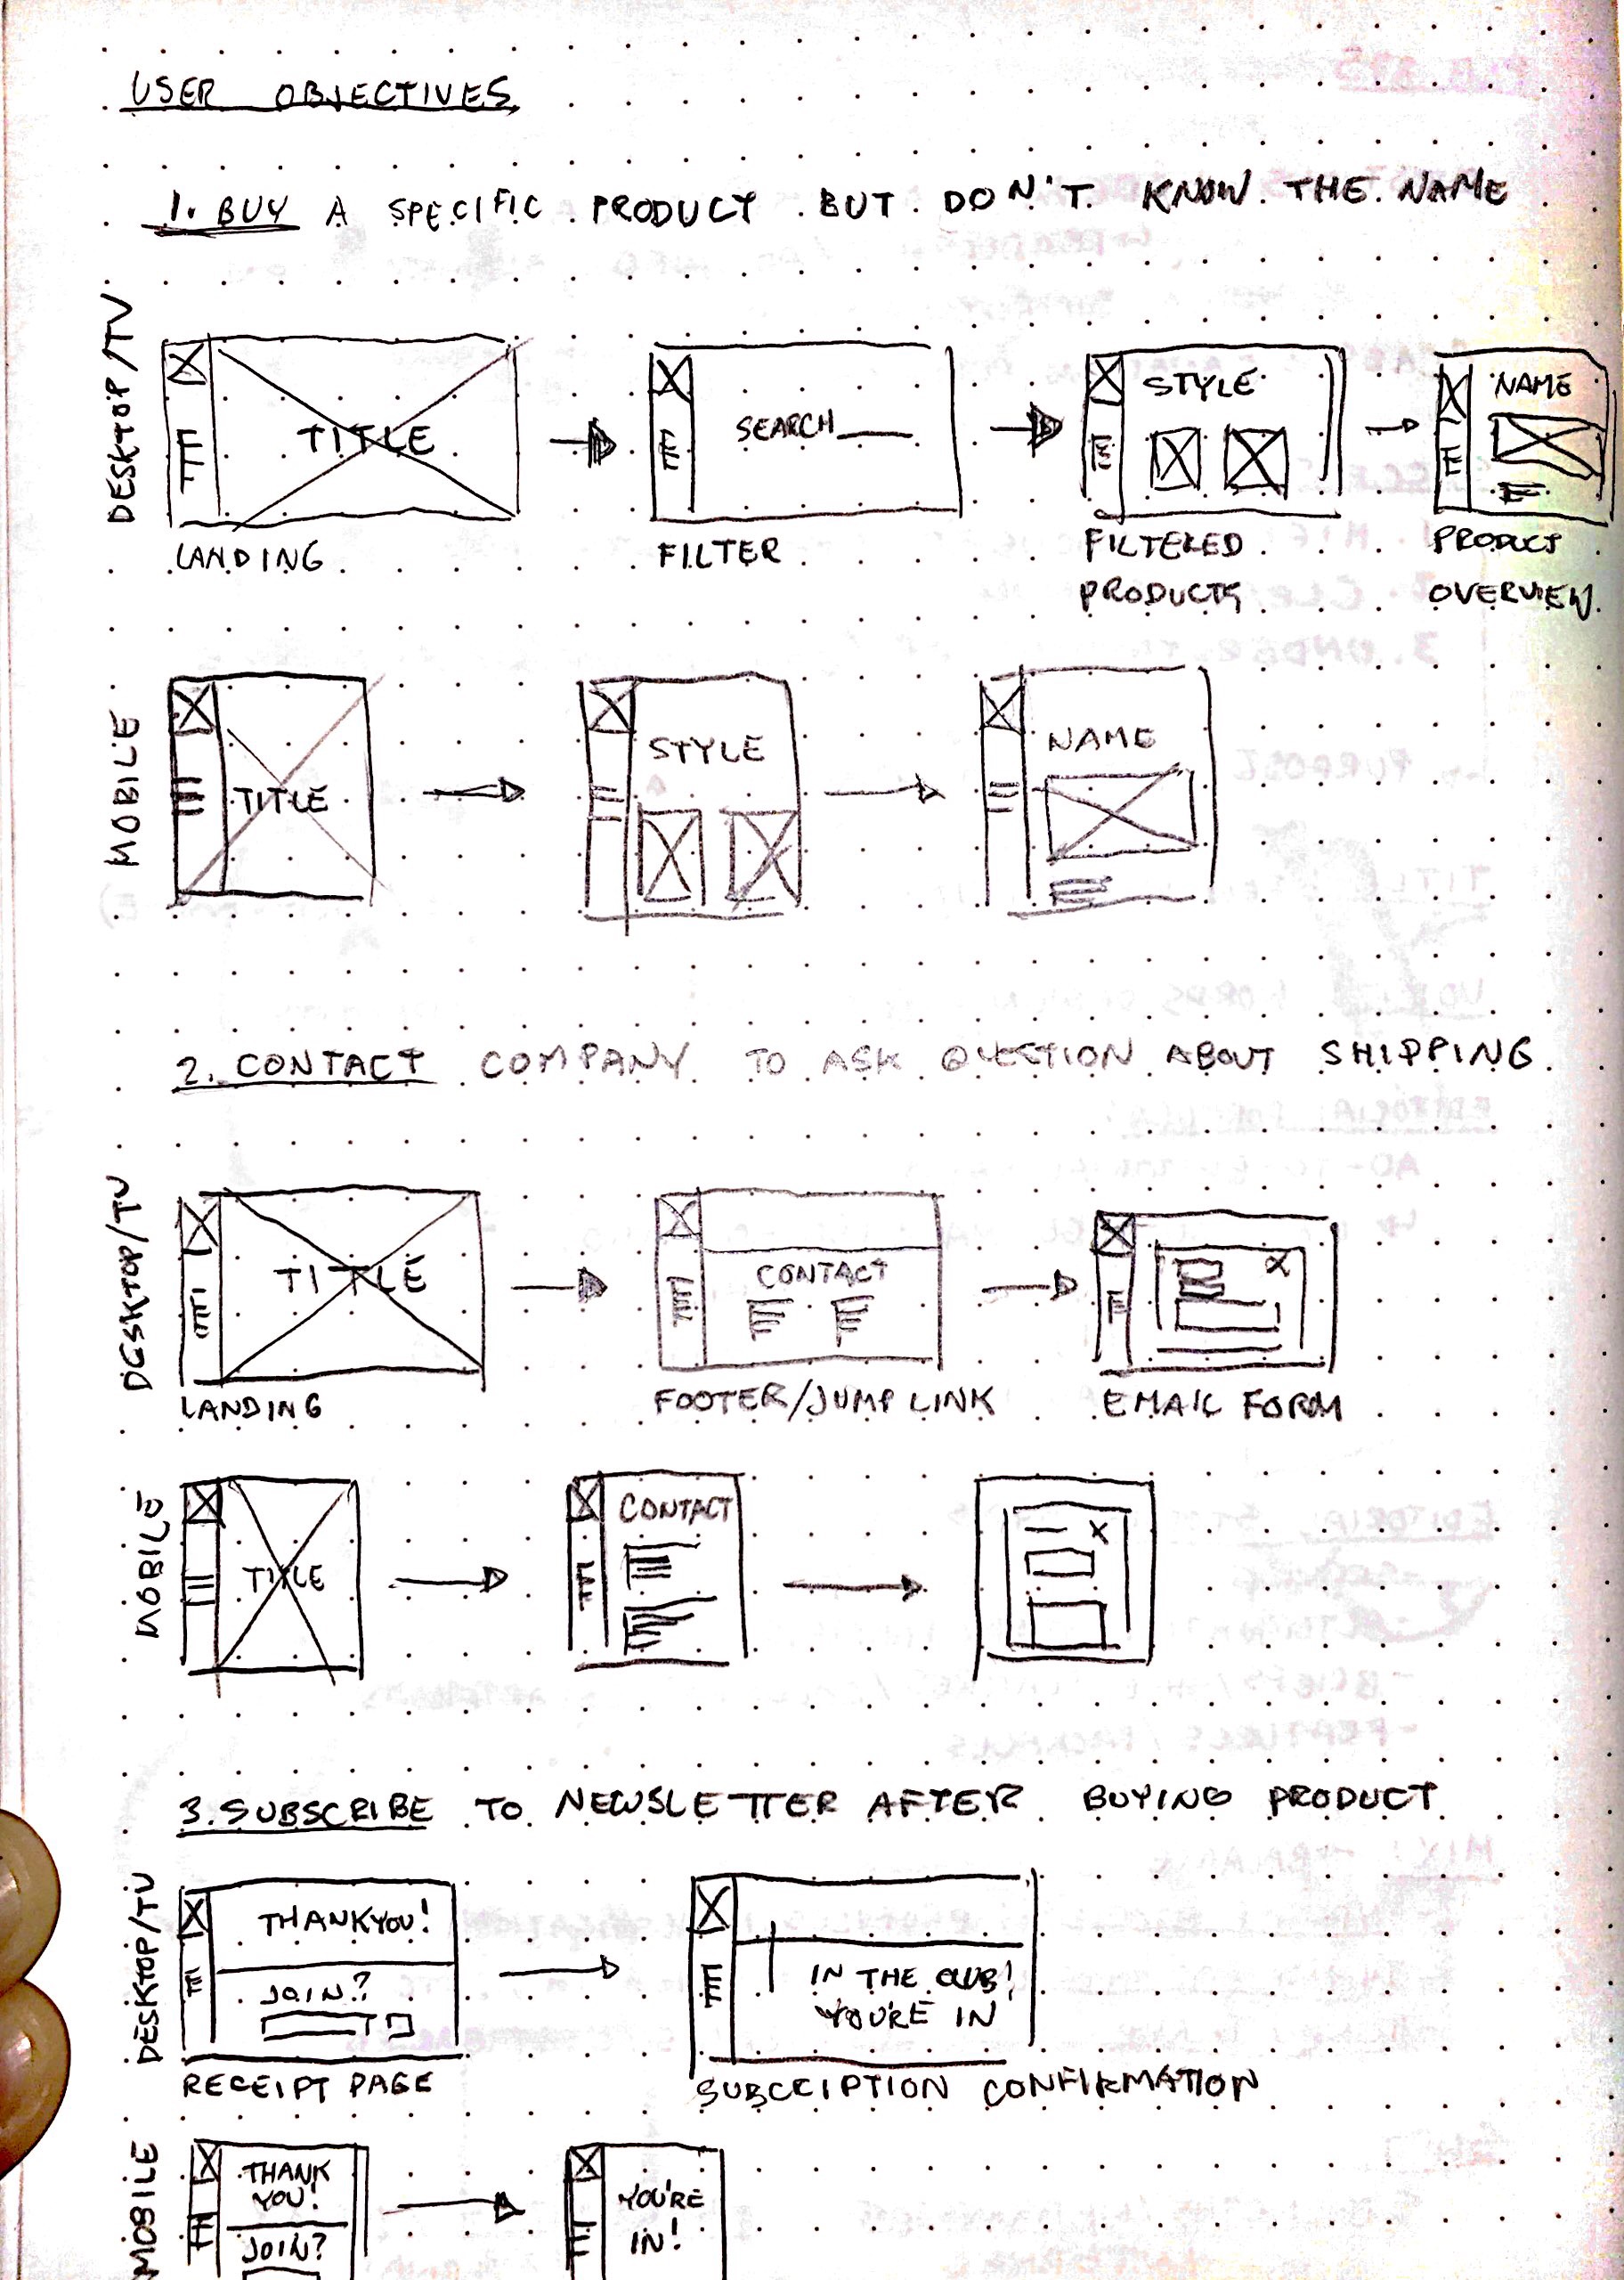 USER OBJECTIVES
1. BUY A SPECIFIC PRODUCT BUT DON'T KNOW THE NAME
DESKTOP/TV
TITLE
LANDING
SEARCH
FILTER
STYLE
FILTERED
PRODUCTS
NAME
PRODUCT
OVERVIEW
MOBILE
TITLE
STYLE
NAME
2. CONTACT COMPANY TO ASK QUESTION ABOUT SHIPPING
DESKTOP/TV
TITLE
LANDING
CONTACT
FOOTER/JUMP LINK
X
EMAIL FORM
MOBILE
TITLE
CONTACT
X
3. SUBSCRIBE TO NEWSLETTER AFTER BUYING PRODUCT
DESKTOP/TV
THANKYOU!
JOIN?
RECEIPT PAGE
IN THE CLUB!
YOU'RE IN
SUBSCRIPTION CONFIRMATION
MOBILE
THANK
YOU!
JOIN?
YOU'RE
IN!